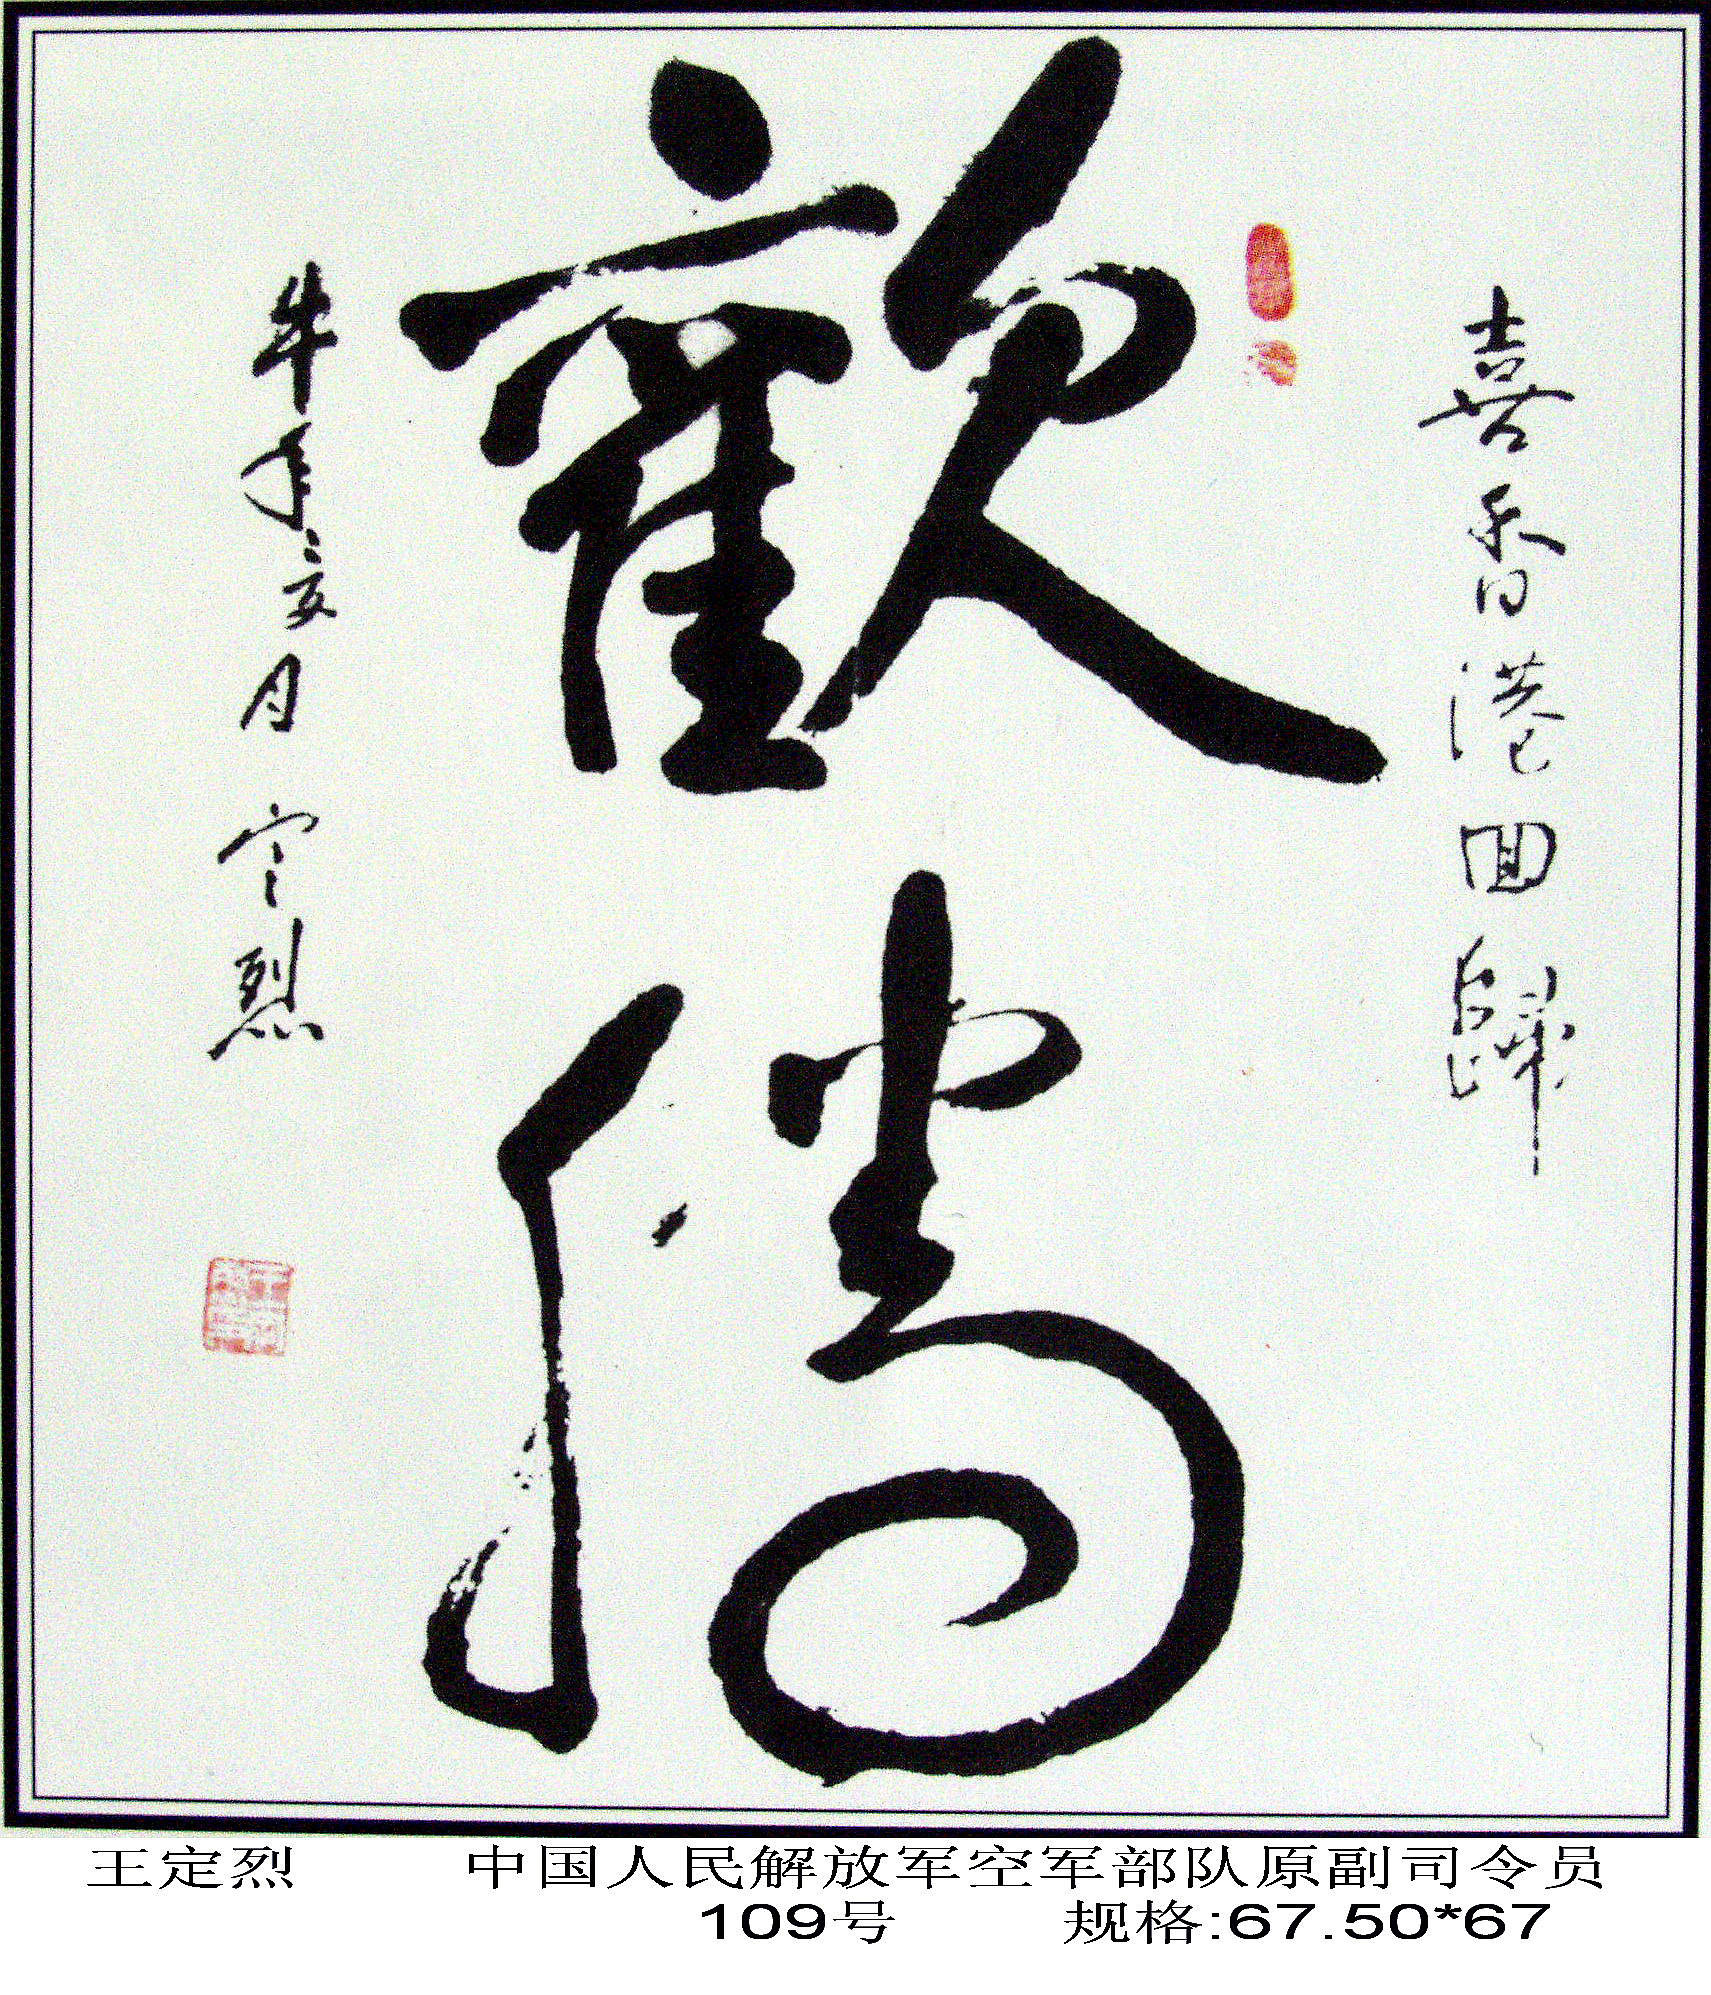 喜香港回歸
歡騰
牛年亥月 定烈
王定烈 中国人民解放军空军部队原副司令员
109号 规格:67.50*67